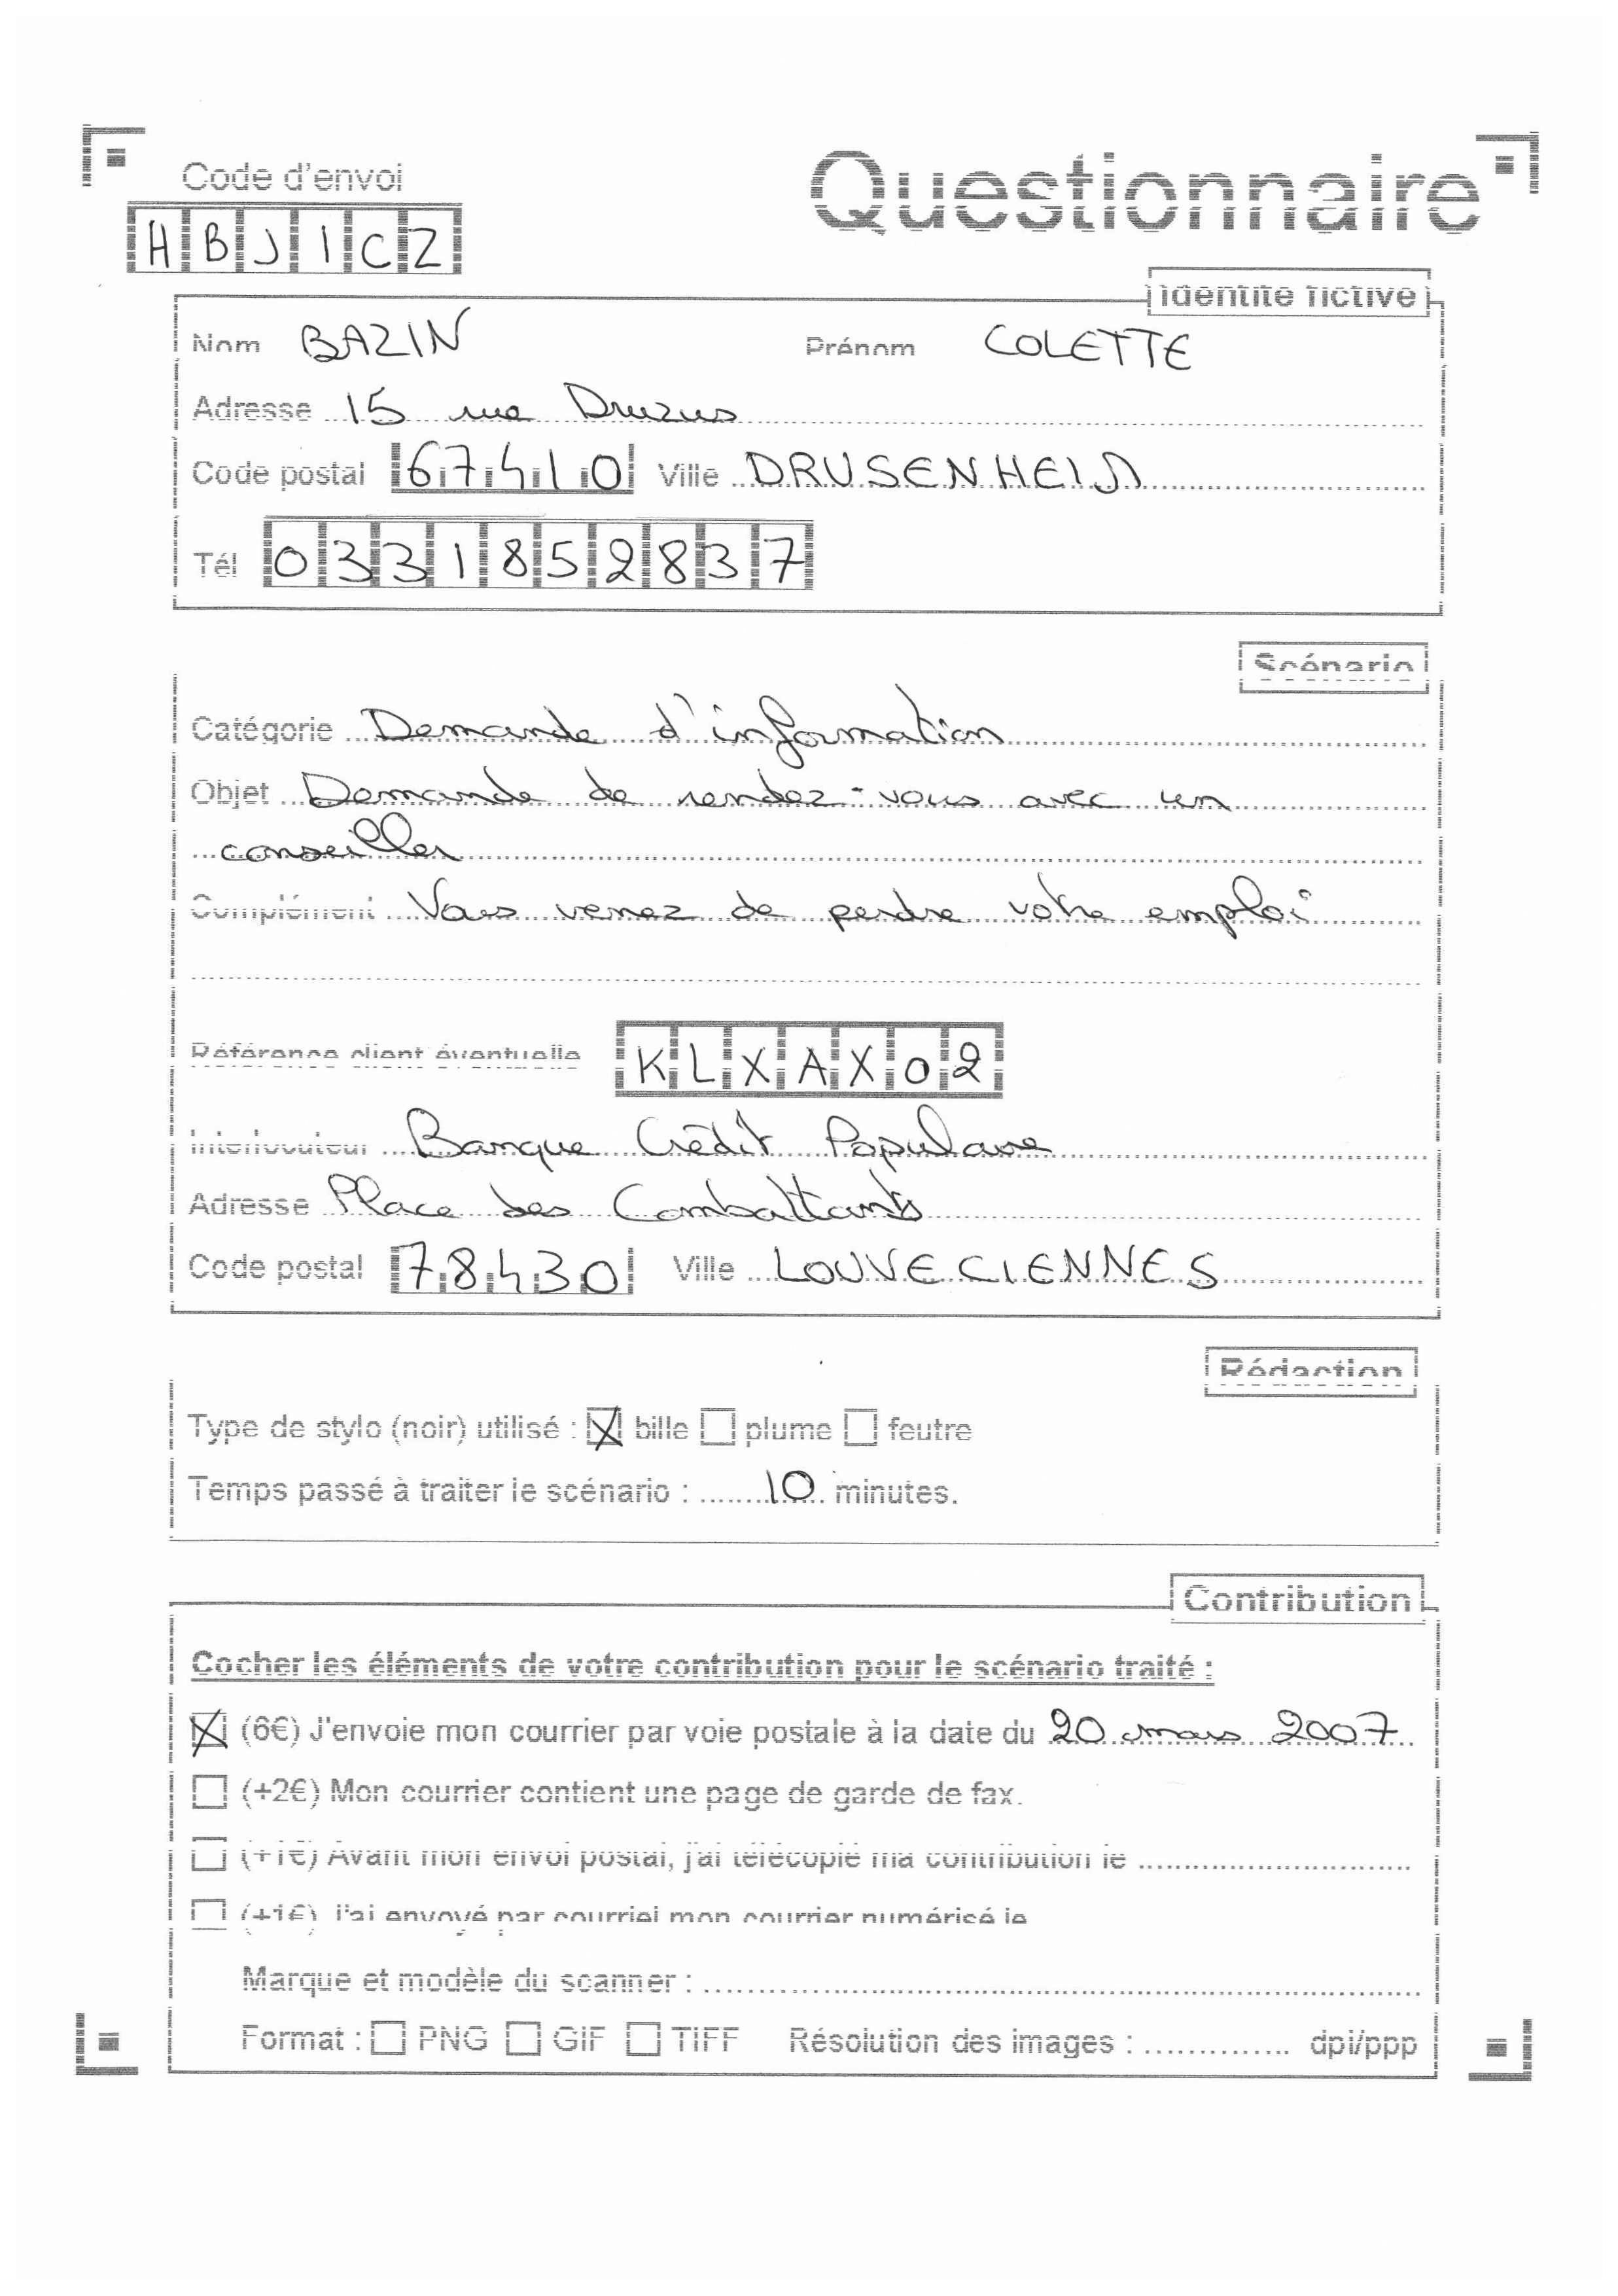 Code d'envoi
Questionnaire
HBJICZ
Identité fictive
Nom BAZIN Prénom COLETTE
Adresse 15 rue Druzus
Code postal 67410 Ville DRUSENHEIM
Tél 0331852837
Scénario
Catégorie Demande d'information
Objet Demande de rendez-vous avec un
conseiller
Complément Vous venez de perdre votre emploi
Référence client éventuelle KLXAX02
Interlocuteur Banque Crédit Populaire
Adresse Place des Combattants
Code postal 78430 Ville LOUVECIENNES
Rédaction
Type de stylo (noir) utilisé : bille plume feutre
Temps passé à traiter le scénario : 10 minutes.
Contribution
Cocher les éléments de votre contribution pour le scénario traité :
(6€) J'envoie mon courrier par voie postale à la date du 20 mars 2007
(+2€) Mon courrier contient une page de garde de fax.
(+1€) Avant mon envoi postal, j'ai télécopié ma contribution le
(+1€) J'ai envoyé par courriel mon courrier numérisé le
Marque et modèle du scanner :
Format : PNG GIF TIFF Résolution des images : dpi/ppp